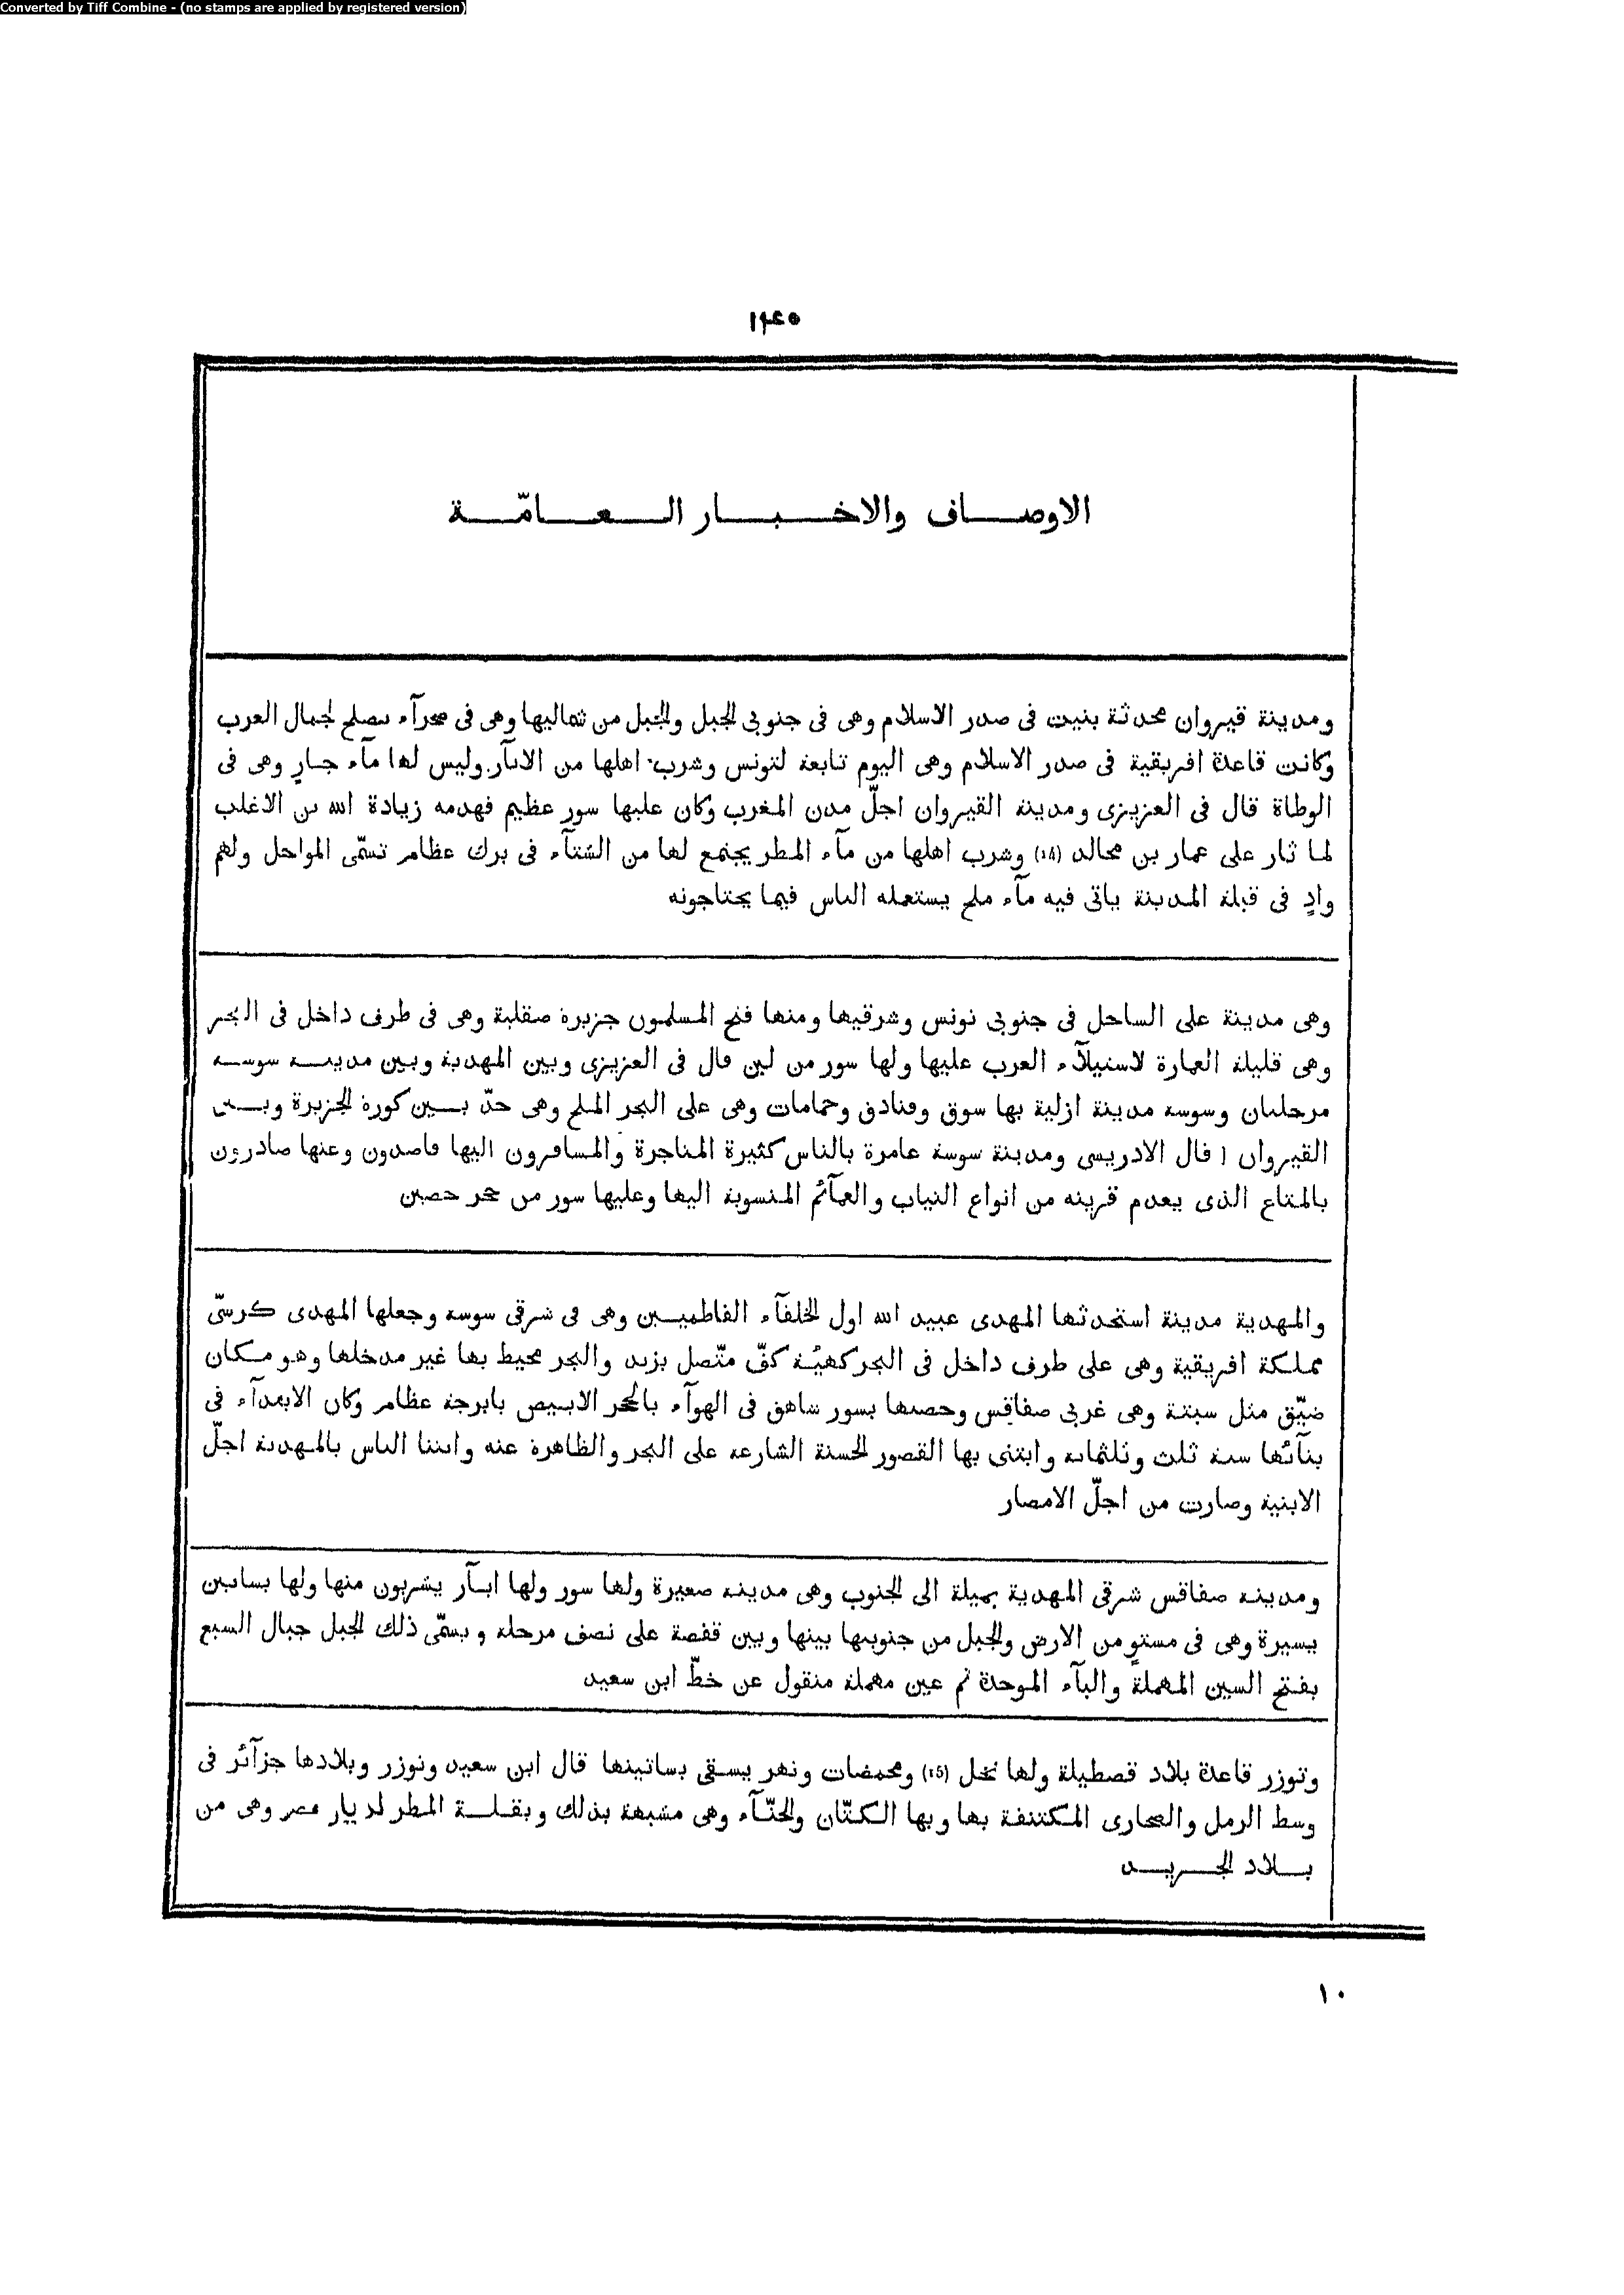 Converted by Tiff Combine - (no stamps are applied by registered version)
١٤٥
الاوصاف والاخبار العامّة
ومدينة قيروان محدثة بنيت فى صدر الاسلام وهى فى جنوبى الجبل والجبل من شماليها وهى فى صحرآء تصلح لجمال العرب
وكانت قاعدة افريقية فى صدر الاسلام وهى اليوم تابعة لتونس وشرب اهلها من الابآر وليس لها مآء جارٍ وهى فى
الوطاة قال فى العزيزى ومدينة القيروان اجلّ مدن المغرب وكان عليها سور عظيم فهدمه زيادة الله بن الاغلب
لما ثار على عمار بن مخالد (14) وشرب اهلها من مآء المطر يجتمع لها من الشتآء فى برك عظام تسمّى المواجل ولهم
وادٍ فى قبلة المدينة ياتى فيه مآء ملح يستعمله الناس فيما يحتاجونه
وهى مدينة على الساحل فى جنوبى تونس وشرقيها ومنها فتح المسلمون جزيرة صقلية وهى فى طرف داخل فى البحر
وهى قليلة العمارة لاستيلآء العرب عليها ولها سور من لبن قال فى العزيزى وبين المهدية وبين مدينة سوسة
مرحلتان وسوسة مدينة ازلية بها سوق وفنادق وحمامات وهى على البحر الملح وهى حدّ بين كورة الجزيرة وبين
القيروان قال الادريسى ومدينة سوسة عامرة بالناس كثيرة المتاجرة والمسافرون اليها قاصدون وعنها صادرون
بالمتاع الذى يعدم قرينه من انواع الثياب والعمآئم المنسوبة اليها وعليها سور من حجر حصين
والمهدية مدينة استحدثها المهدى عبيد الله اول الخلفآء الفاطميين وهى فى شرقى سوسة وجعلها المهدى كرسىّ
مملكة افريقية وهى على طرف داخل فى البحر كهيئة كفّ متّصل بزند والبحر محيط بها غير مدخلها وهو مكان
ضيّق مثل سبتة وهى غربى صفاقس وحصنها بسور شاهق فى الهوآء بالحجر الابيض بابرجة عظام وكان الابتدآء فى
بنآئها سنة ثلث وثلثماية وابتنى بها القصور الحسنة الشارعة على البحر والظاهرة عنه وابتنا الناس بالمهدية اجلّ
الابنية وصارت من اجلّ الامصار
ومدينة صفاقس شرقى المهدية بميلة الى الجنوب وهى مدينة صغيرة ولها سور ولها ابآر يشربون منها ولها بساتين
يسيرة وهى فى مستوٍ من الارض والجبل من جنوبيها بينها وبين قفصة على نصف مرحلة ويسمّى ذلك الجبل جبال السبع
بفتح السين المهملة والبآء الموحدة ثم عين مهملة منقول عن خطّ ابن سعيد
وتوزر قاعدة بلاد قصطيلة ولها نخل (15) ومحمضات ونهر يسقى بساتينها قال ابن سعيد وتوزر وبلادها جزآئر فى
وسط الرمل والصحارى المكتنفة بها وبها الكتّان والحنّآء وهى مشبهة بذلك وبقلة المطر لديار مصر وهى من
بلاد الجريد
١٠